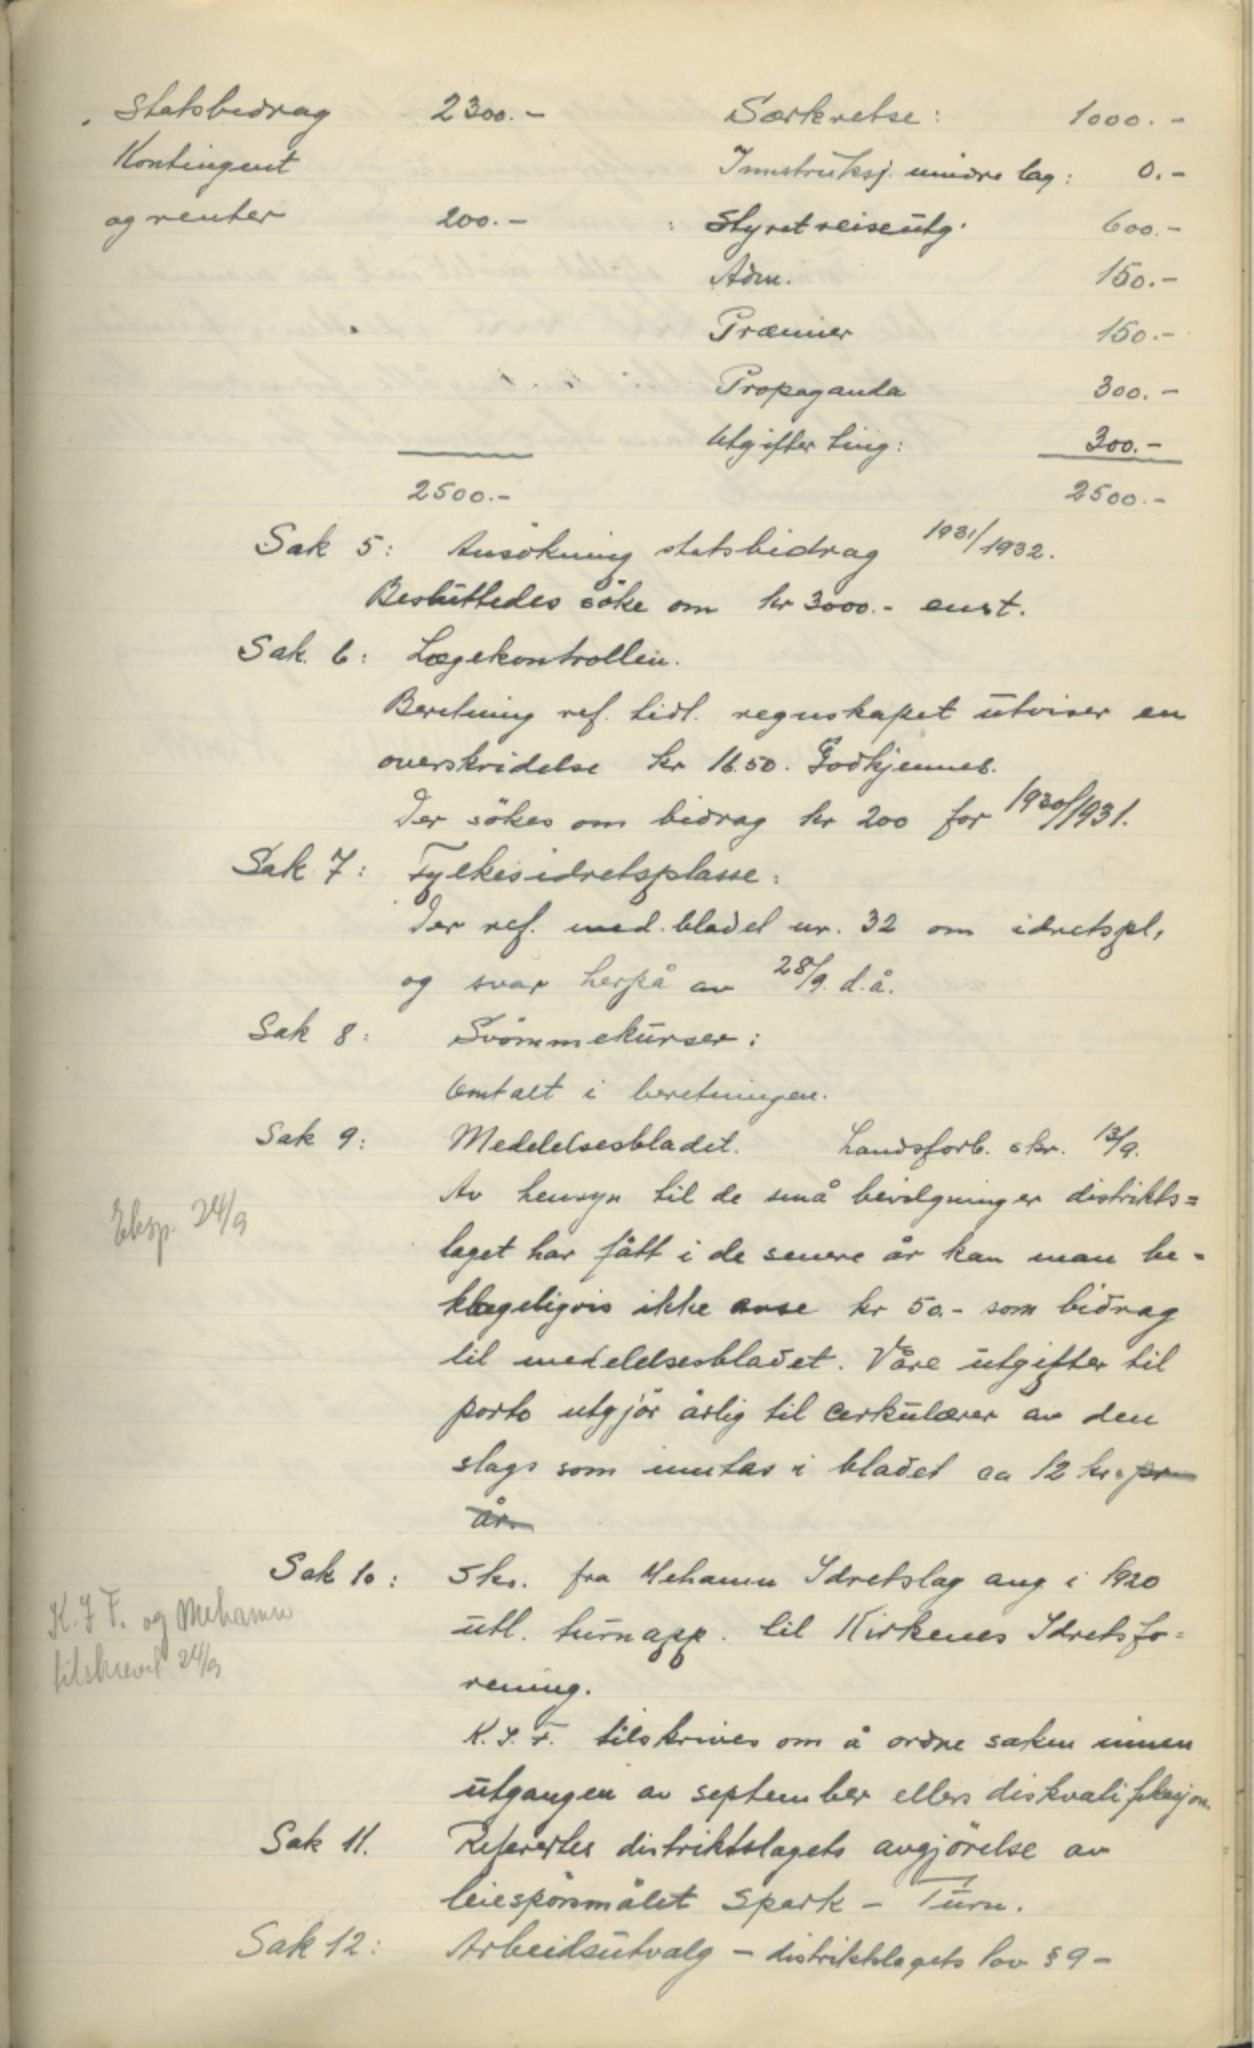 Statsbidrag 2300.- Særkretse: 1000.-
Kontingent Innstruksj. mindre lag: 0.-
og renter 200.- : Styret reiseutg. 600.-
Adm. 150.-
Præmier 150.-
Propaganda 300.-
Utgifter ting: 300.-
2500.- 2500.-
Sak 5: Ansökning statsbidrag 1931/1932.
Besluttedes söke om kr 3000.- enst.
Sak. 6: Lægekontrollen.
Beretning ref. tidl. regnskapet utviser en
overskridelse kr 16.50. Godkjennes.
Der sökes om bidrag kr 200 for 1930/1931.
Sak 7: Fylkesidretsplasse:
Der ref. med. bladet nr. 32 om idretspl,
og svar herpå av 28/9. d.å.
Sak 8: Svömmekurser:
Omtalt i beretningen.
Sak 9: Medelelsesbladet. Landsforb. skr. 13/9.
Av hensyn til de små bevilgninger distrikts=
Eksp. 24/9
laget har fått i de senere år kan man be-
klageligvis ikke avse kr 50.- som bidrag
til medelelsesbladet. Våre utgifter til
porto utgjör årlig til cirkulærer av den
slags som inntas i bladet ca 12 kr. pr
år.
Sak 10: Skr. fra Mehamn Idretslag ang i 1920
K.I.F. og Mehamn
utl. turnapp. til Kirkenes Idretsfo=
tilskrevet 24/9
rening.
K.I.F. tilskrives om å ordne saken innen
utgangen av september ellers diskvalifikasjon.
Sak 11. Refertes distriktslagets avgjörelse av
leiespörsmålet Spark - Turn.
Sak 12: Arbeidsutvalg - distriktslagets lov § 9 -